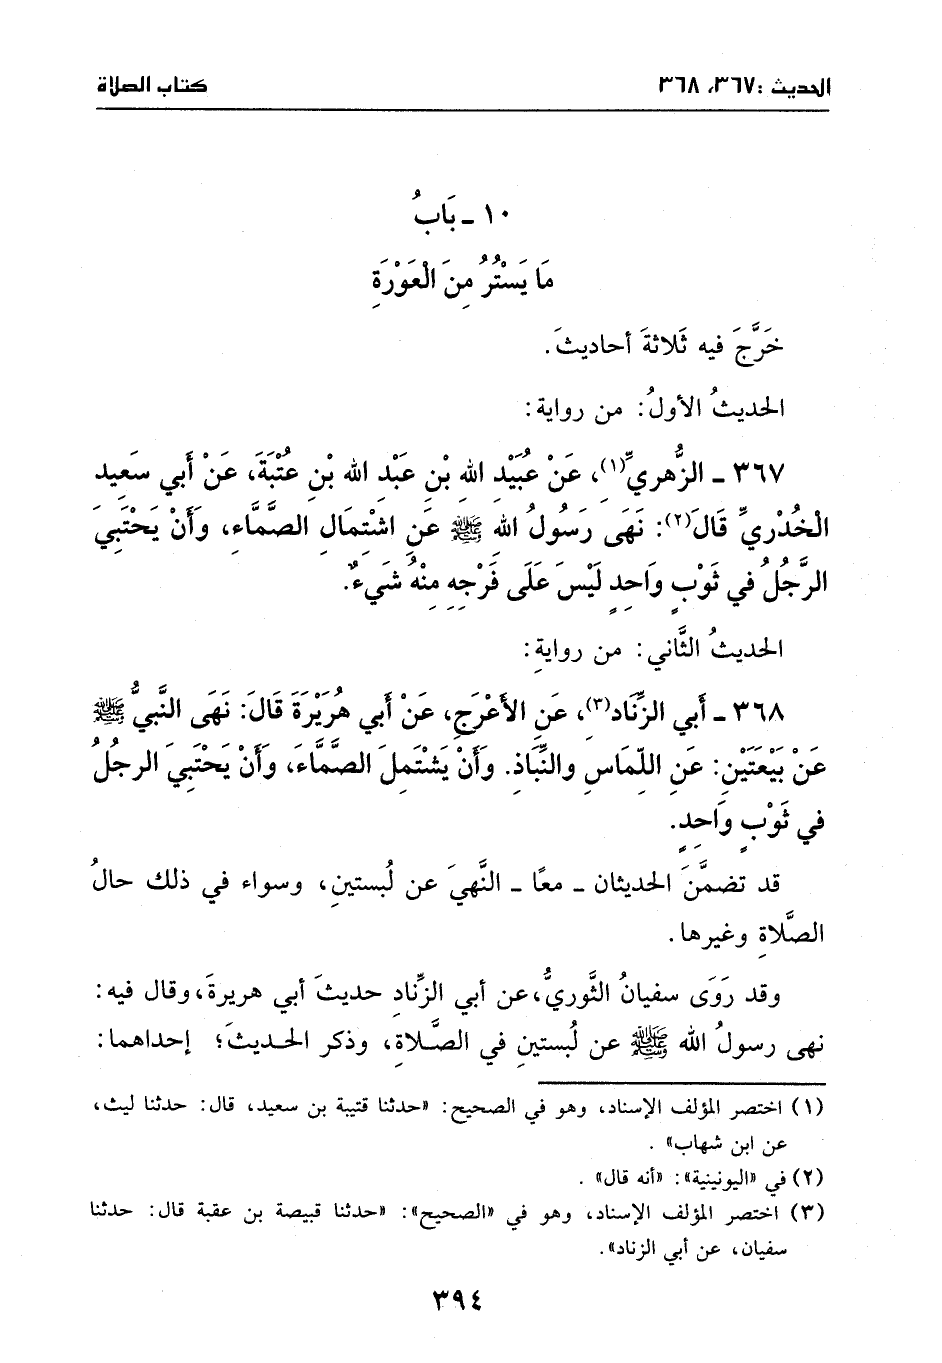 الحديث : ٣٦٧، ٣٦٨
كتاب الصلاة
١٠ ـ بَابُ
مَا يَسْتُرُ مِنَ الْعَوْرَةِ
خَرَّجَ فيه ثَلاثةَ أحاديثَ.
الحديثُ الأولُ: من رواية:
٣٦٧ ـ الزُّهريِّ(١)، عَنْ عُبَيْدِ اللهِ بْنِ عَبْدِ اللهِ بْنِ عُتْبَةَ، عَنْ أَبي سَعِيدٍ
الْخُدْريِّ قَالَ(٢): نَهَى رَسُولُ اللهِ ﷺ عَنِ اشْتِمَالِ الصَّمَّاءِ، وَأَنْ يَحْتَبِيَ
الرَّجُلُ في ثَوْبٍ وَاحِدٍ لَيْسَ عَلَى فَرْجِهِ مِنْهُ شَيءٌ.
الحديثُ الثَّاني: من روايةِ:
٣٦٨ ـ أَبي الزِّنَادِ(٣)، عَنِ الأَعْرَجِ، عَنْ أَبي هُرَيْرَةَ قَالَ: نَهَى النَّبيُّ ﷺ
عَنْ بَيْعَتَيْنِ: عَنِ اللِّمَاسِ والنِّبَاذِ. وَأَنْ يَشْتَمِلَ الصَّمَّاءَ، وَأَنْ يَحْتَبِيَ الرجلُ
في ثَوْبٍ وَاحِدٍ.
قد تضمَّنَ الحديثان ـ معًا ـ النَّهيَ عن لُبستينِ، وسواء في ذلك حالُ
الصَّلاةِ وغيرها.
وقد رَوَى سفيانُ الثَّوريُّ، عن أبي الزِّنادِ حديثَ أبي هريرةَ، وقال فيه:
نهى رسولُ الله ﷺ عن لُبستينِ في الصَّلاةِ، وذكر الحديثَ؛ إحداهما:
(١) اختصر المؤلف الإسناد، وهو في الصحيح: «حدثنا قتيبة بن سعيد، قال: حدثنا ليث،
عن ابن شهاب» .
(٢) في «اليونينية»: «أنه قال» .
(٣) اختصر المؤلف الإسناد، وهو في «الصحيح»: «حدثنا قبيصة بن عقبة قال: حدثنا
سفيان، عن أبي الزناد».
٣٩٤